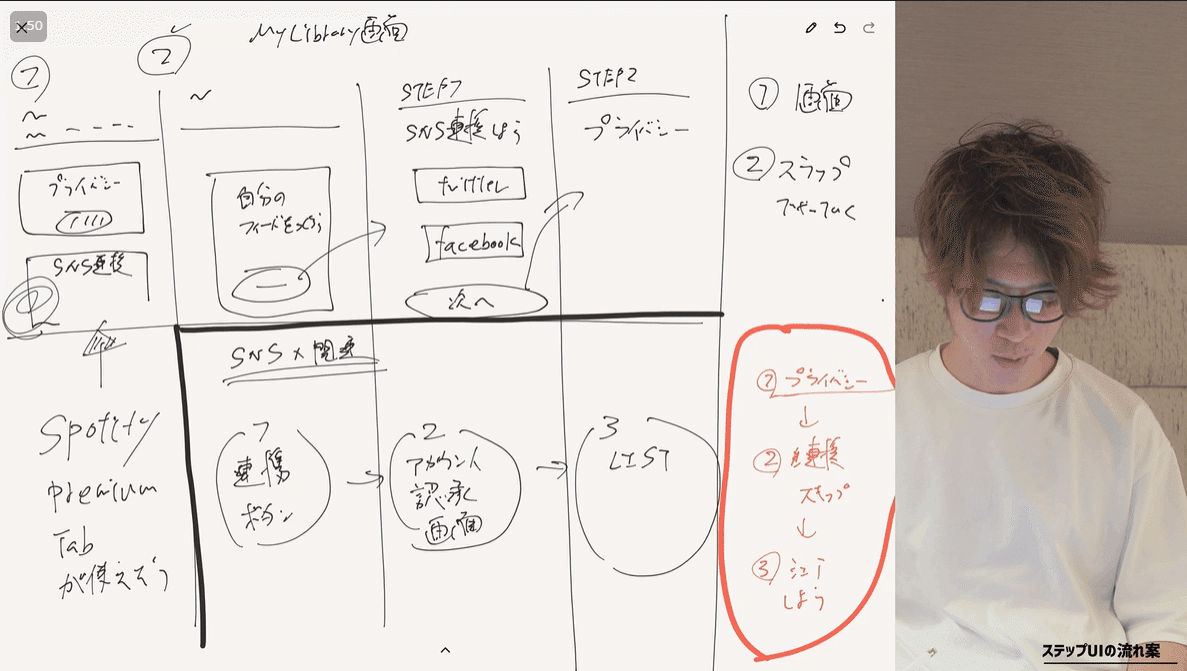 :50
MyLibrary画面
1
2
プライバシー
SNS連携
自分の
フィードをつくろう
STEP1
SNS連携しよう
twitter
facebook
次へ
STEP2
プライバシー
① 画面
② ステップ
SNS × 関連
Spotify
premium
Tab
が使えそう
1
連携
ボタン
2
アカウント
認承
画面
3
LIST
① プライバシー
② 連携
スキップ
③
しよう
ステップUIの流れ案